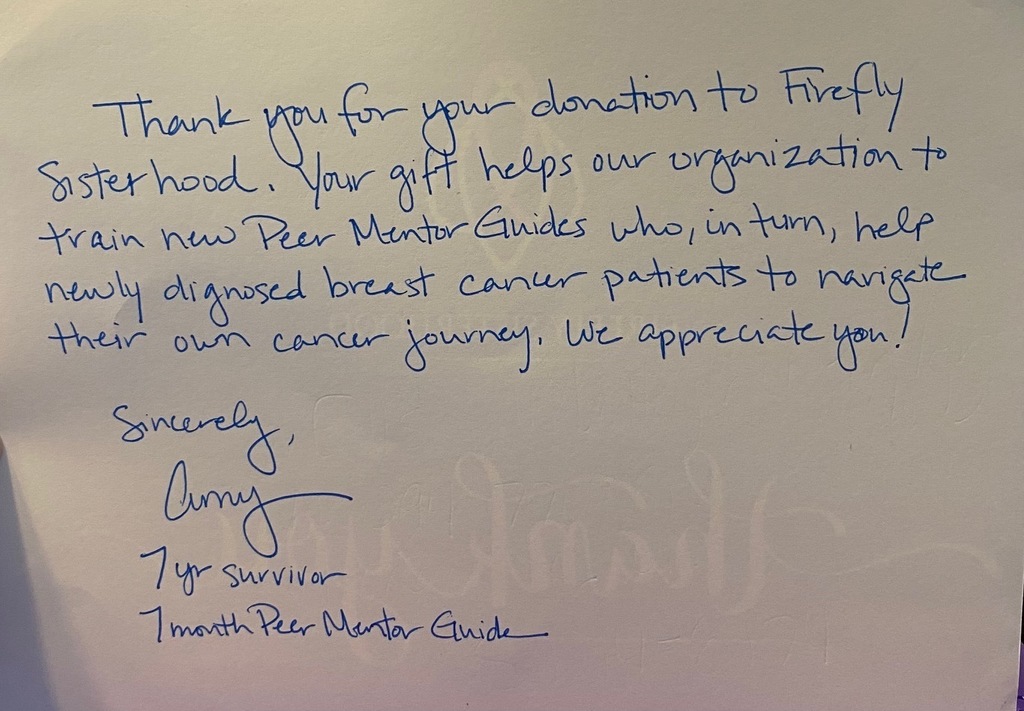 Thank you for your donation to Firefly
Sisterhood. Your gift helps our organization to
train new Peer Mentor Guides who, in turn, help
newly dignosed breast cancer patients to navigate
their own cancer journey. We appreciate you!
Sincerely,
Amy
7 yr survivor
7 month Peer Mentor Guide
thank you